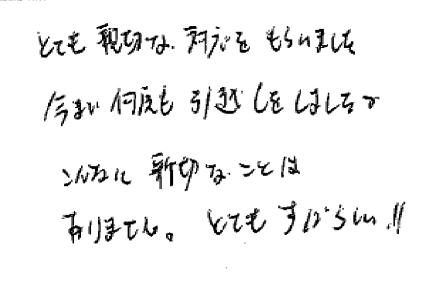 とても親切な対応をもらいました
今まで何度も引越しをしましたが
こんなに親切なことは
ありません。とてもすばらしい!!